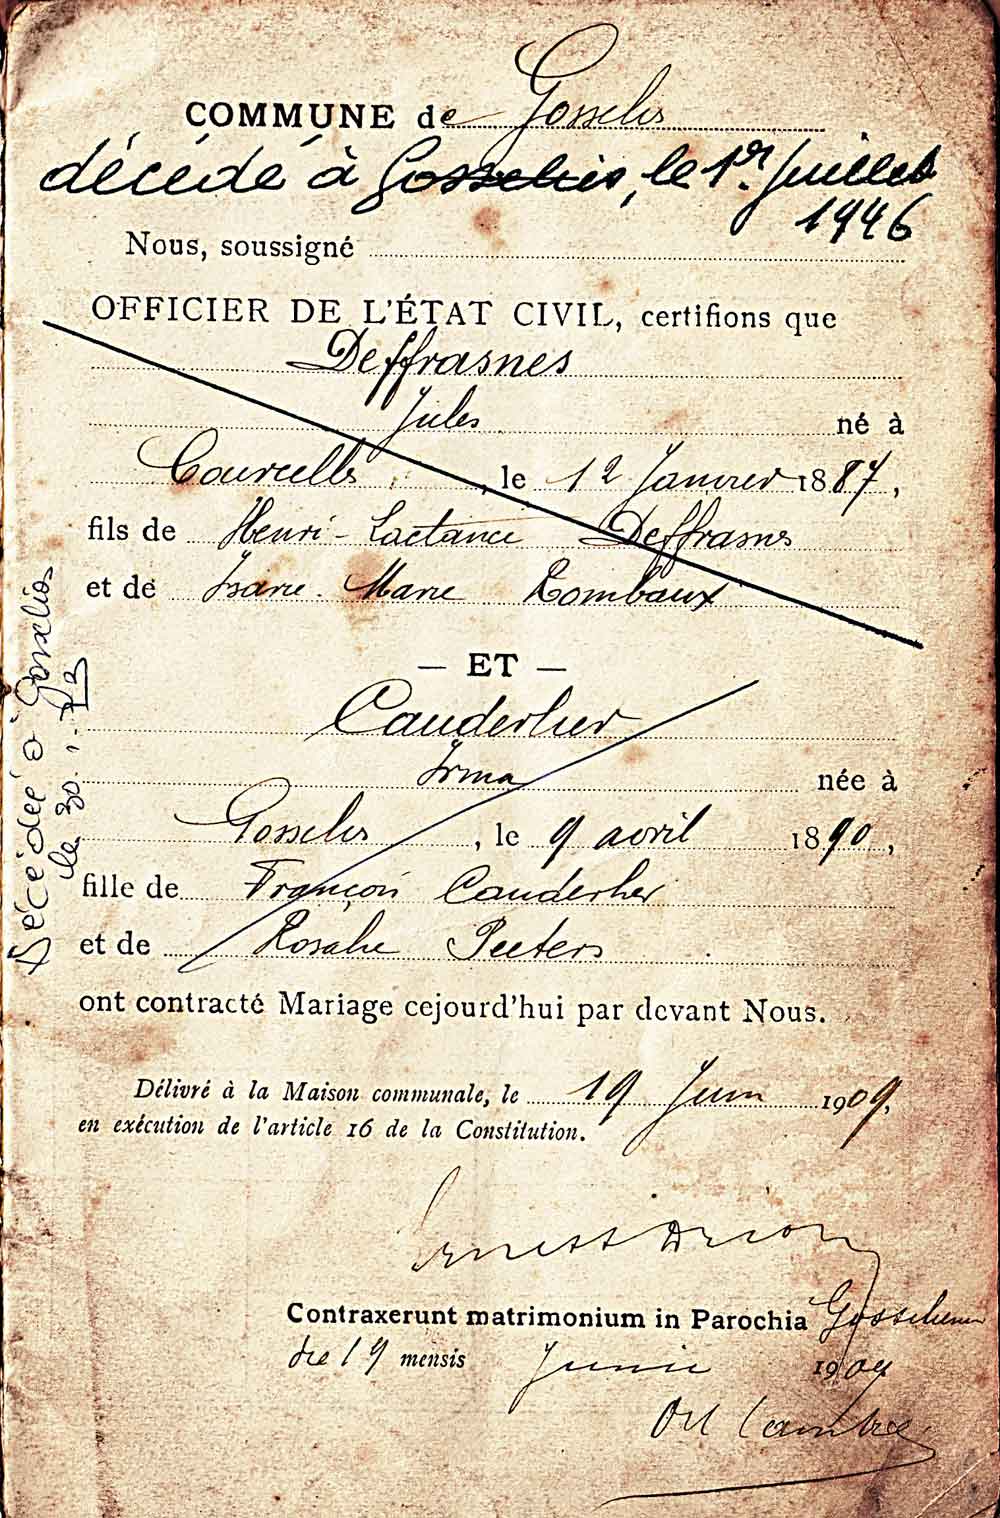 COMMUNE de Gosselies
décédé à Gosselies, le 1er Juillet
1946
Nous, soussigné
OFFICIER DE L'ÉTAT CIVIL, certifions que
Deffrasnes
Jules né à
Courcelles, le 12 Janvier 1887,
fils de Henri-Lactance Deffrasnes
et de Marie Rombaux
— ET —
Cauderlier
Irma née à
Gosselies, le 9 avril 1890,
fille de François Cauderlier
et de Rosalie Peeters
Décédée à Gosselies
le 30.1.72
ont contracté Mariage cejourd'hui par devant Nous.
Délivré à la Maison communale, le 19 Juin 1909,
en exécution de l'article 16 de la Constitution.
Ernest Drion
Contraxerunt matrimonium in Parochia
die 19 mensis Junii 1909